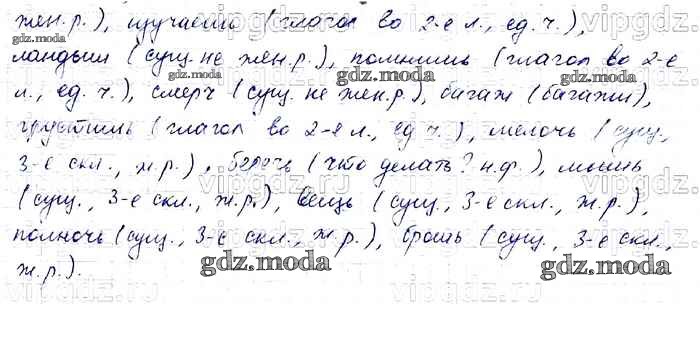 жен.р.), изучаешь (глагол во 2-е л., ед. ч.),
ландыш (сущ. не жен.р.), помнишь (глагол во 2-е
л., ед. ч.), смерч (сущ. не жен.р.), багаж (багажи),
грустишь (глагол во 2-е л., ед. ч.), мелочь (сущ.,
3-е скл., ж.р.), беречь (что делать? н.ф.), мышь
(сущ., 3-е скл., ж.р.), вещь (сущ., 3-е скл., ж.р.),
полночь (сущ., 3-е скл., ж.р.), брошь (сущ., 3-е скл.,
ж.р.).
gdz.moda
gdz.moda
gdz.moda
vipgdz.ru